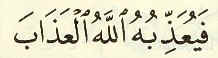 فَيُعَذِّبُهُ ٱللَّهُ ٱلْعَذَابَ